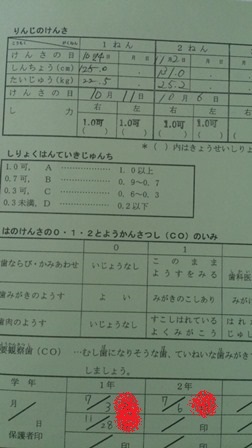 りんじのけんさ
1ねん 2ねん
けんさの日 10月24日 月 日 11月2日 月
しんちょう(cm) 125.0 131.0
たいじゅう(kg) 22.5 25.2
けんさの日 10月11日 10月6日
しりょく 右 左 右 左
1.0可 1.0可 1.0可 1.0可
( ) ( ) ( ) ( )
*( )内はきょうせいしりょ
しりょくはんていきじゅんち
1.0可, A ………… 1.0以上
0.7可, B ………… 0.9〜0.7
0.3可, C ………… 0.6〜0.3
0.3未満, D ………… 0.2以下
はのけんさの0・1・2とようかんさつし(CO)のいみ
0 1
歯ならび・かみあわせ いじょうなし このままようすをみる 歯科医
歯みがきのようす よい みがきのこしあり
歯肉のようす いじょうなし すこしはれている よくみがこう はれ
要観察歯(CO) …むし歯になりそうな歯、ていねいな歯みがき
しましょう。
学年 1年 2年
月/日 7/3 7/6
11/28
保護者印 印 印